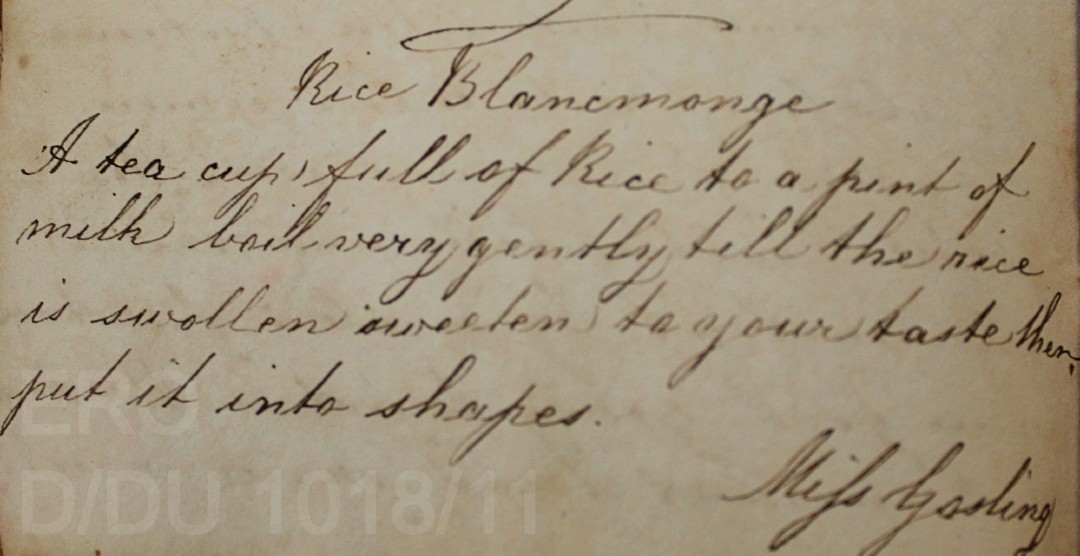 Rice Blancmonge
A tea cup full of Rice to a pint of
milk boil very gently till the rice
is swollen sweeten to your taste then
put it into shapes.
Miss Gosling
ERO
D/DU 1018/11